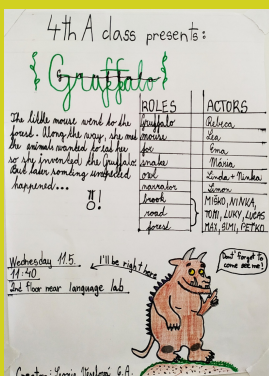 4th A class presents:
{ Gruffalo }
The little mouse went to the
forest. Along the way, she met
the animals wanted to eat her
so she invented the Gruffalo.
But later somting unexpected
happened...
ROLES ACTORS
Gruffalo Rebeca
mouse Lea
fox Ema
snake Mária
owl Linda + Ninka
narrator Simon
brook MIŠKO, NINKA,
road TOMI, LUKY, LUCAS
forest MAX, SIMI, PEŤKO
Wednesday 11.5.
11:40
2nd Floor near language lab.
I'll be right here
Don't forget to
come see me!
4.A.